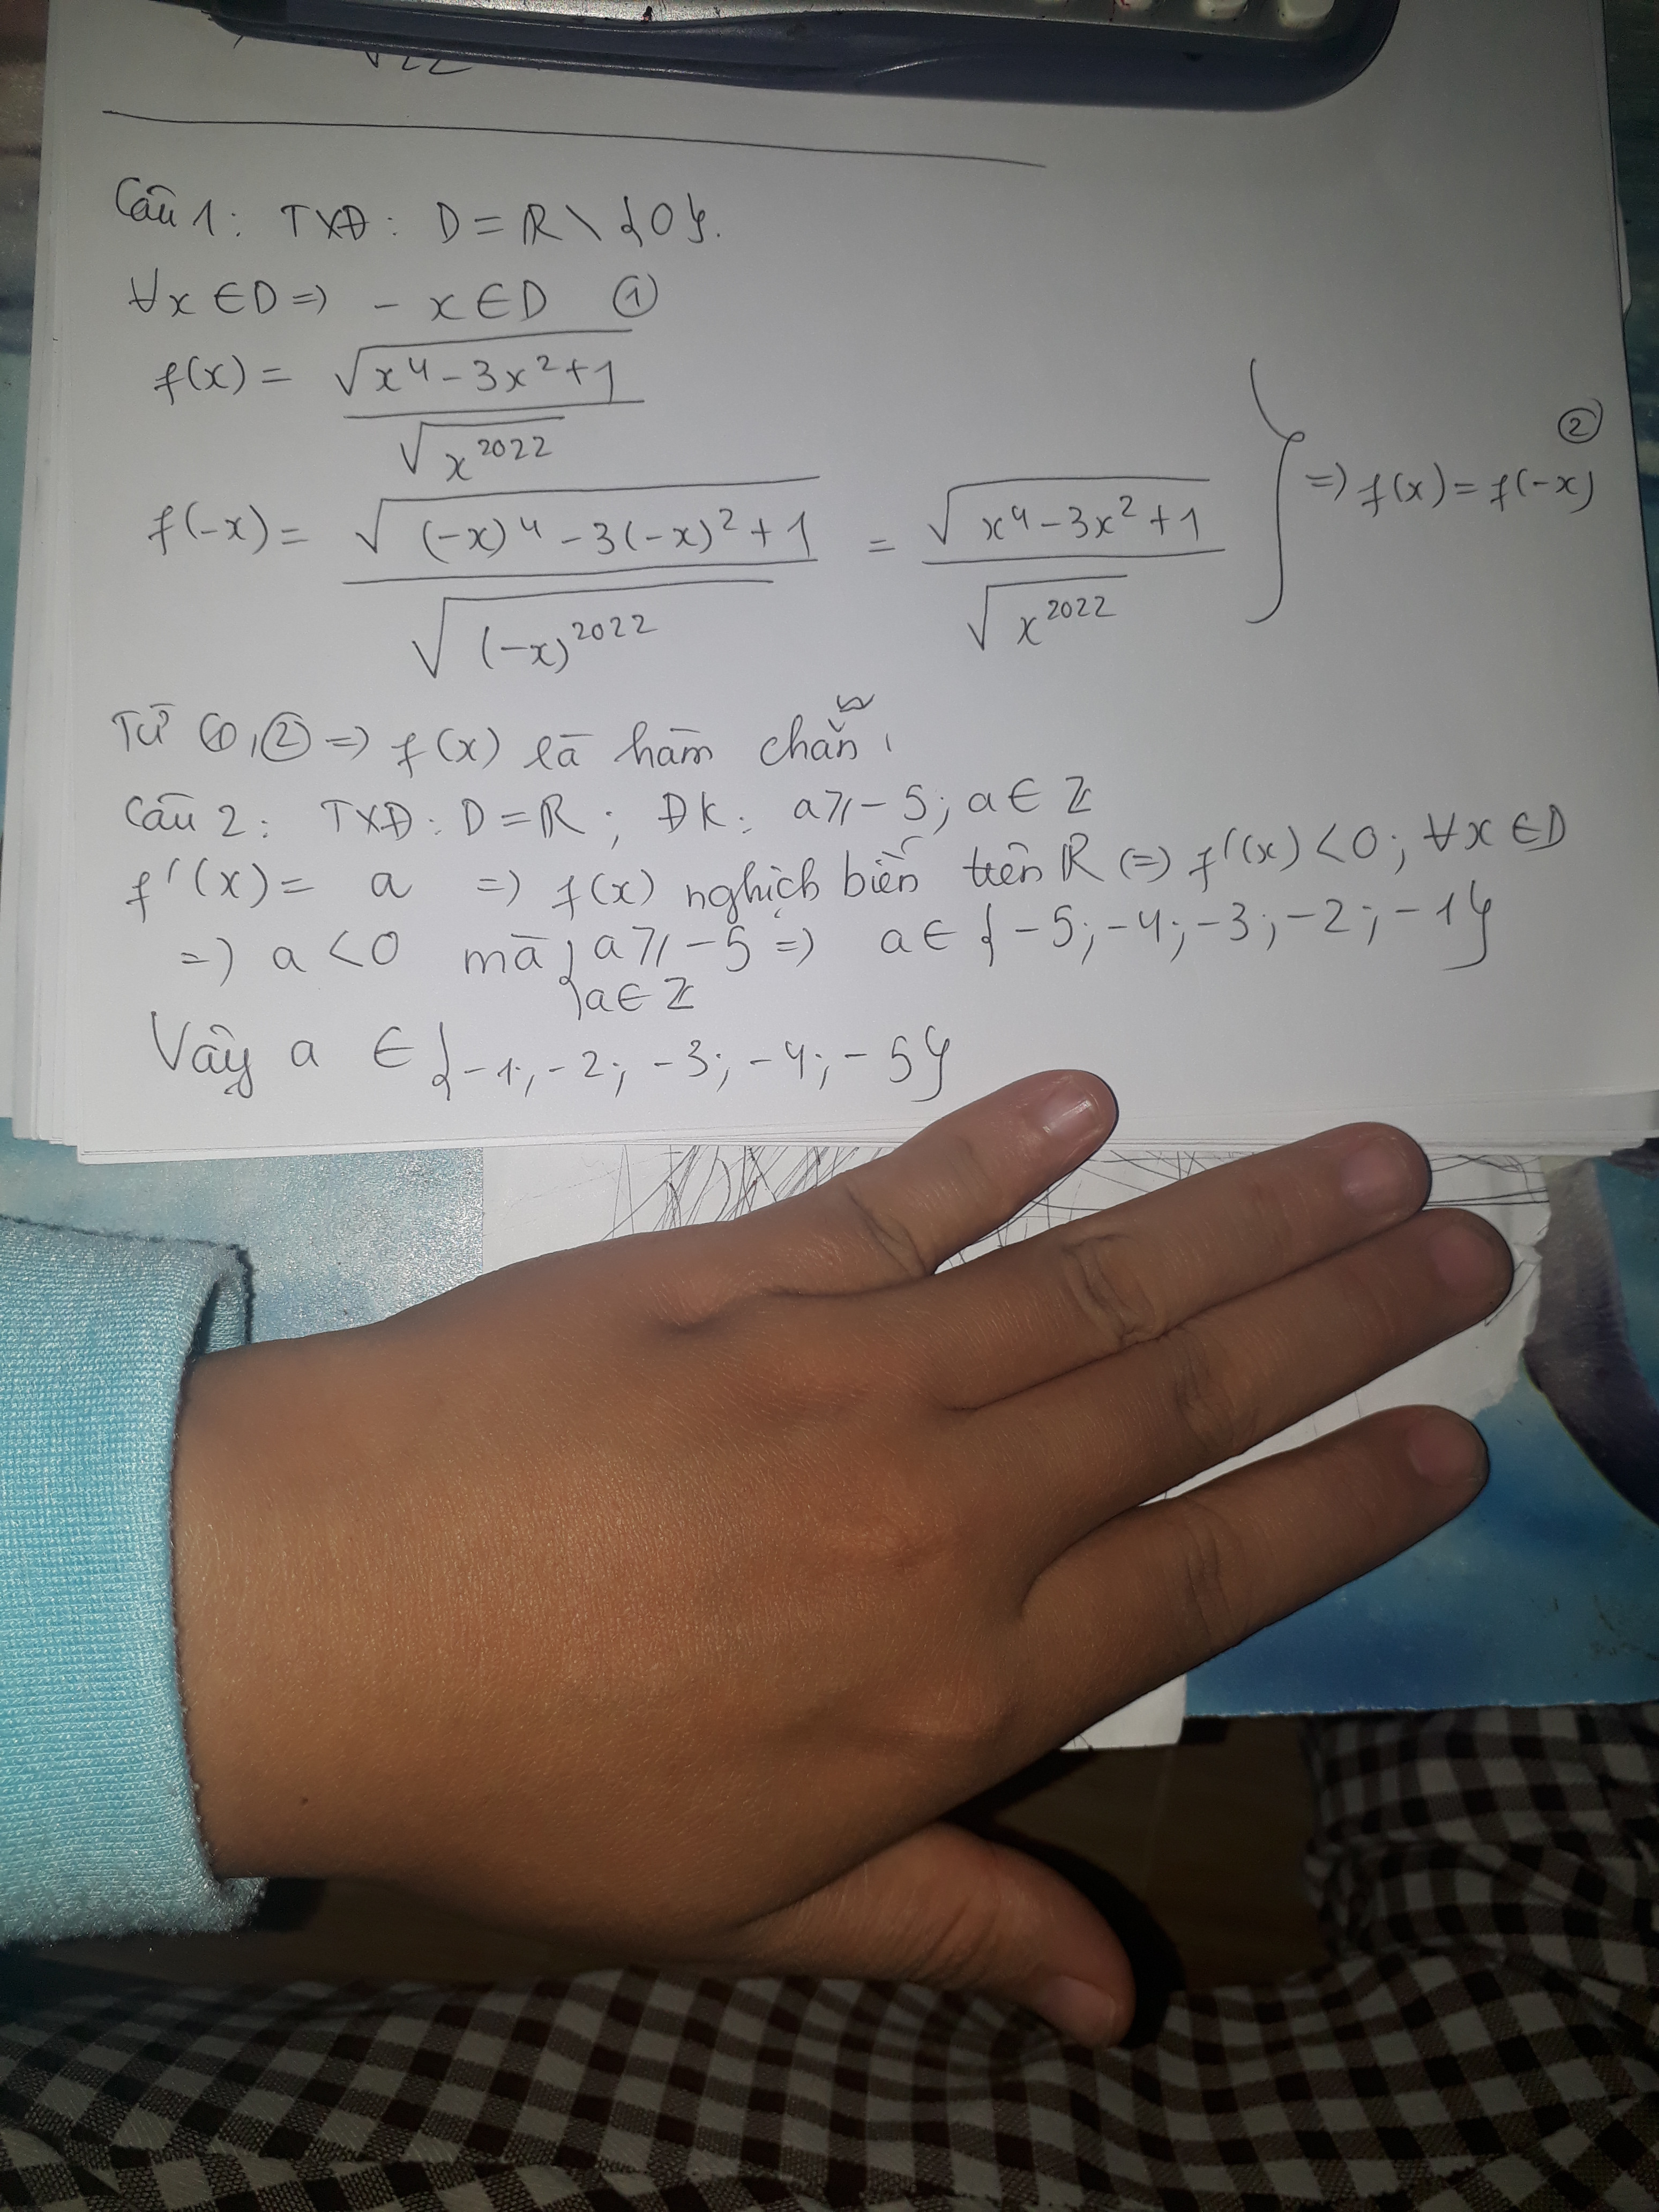 √22
Câu 1: TXĐ: D = R \ {0}.
∀x ∈ D => - x ∈ D ①
f(x) = √(x⁴ - 3x² + 1) / √(x²⁰²²)
f(-x) = √((-x)⁴ - 3(-x)² + 1) / √((-x)²⁰²²) = √(x⁴ - 3x² + 1) / √(x²⁰²²) } => f(x) = f(-x) ②
Từ ①, ② => f(x) là hàm chẵn.
Câu 2: TXĐ: D = R; ĐK: a ≥ - 5; a ∈ Z
f'(x) = a => f(x) nghịch biến trên R (=) f'(x) < 0; ∀x ∈ D
=> a < 0 mà { a ≥ - 5 => a ∈ { - 5; - 4; - 3; - 2; - 1}
a ∈ Z
Vậy a ∈ { - 1; - 2; - 3; - 4; - 5}